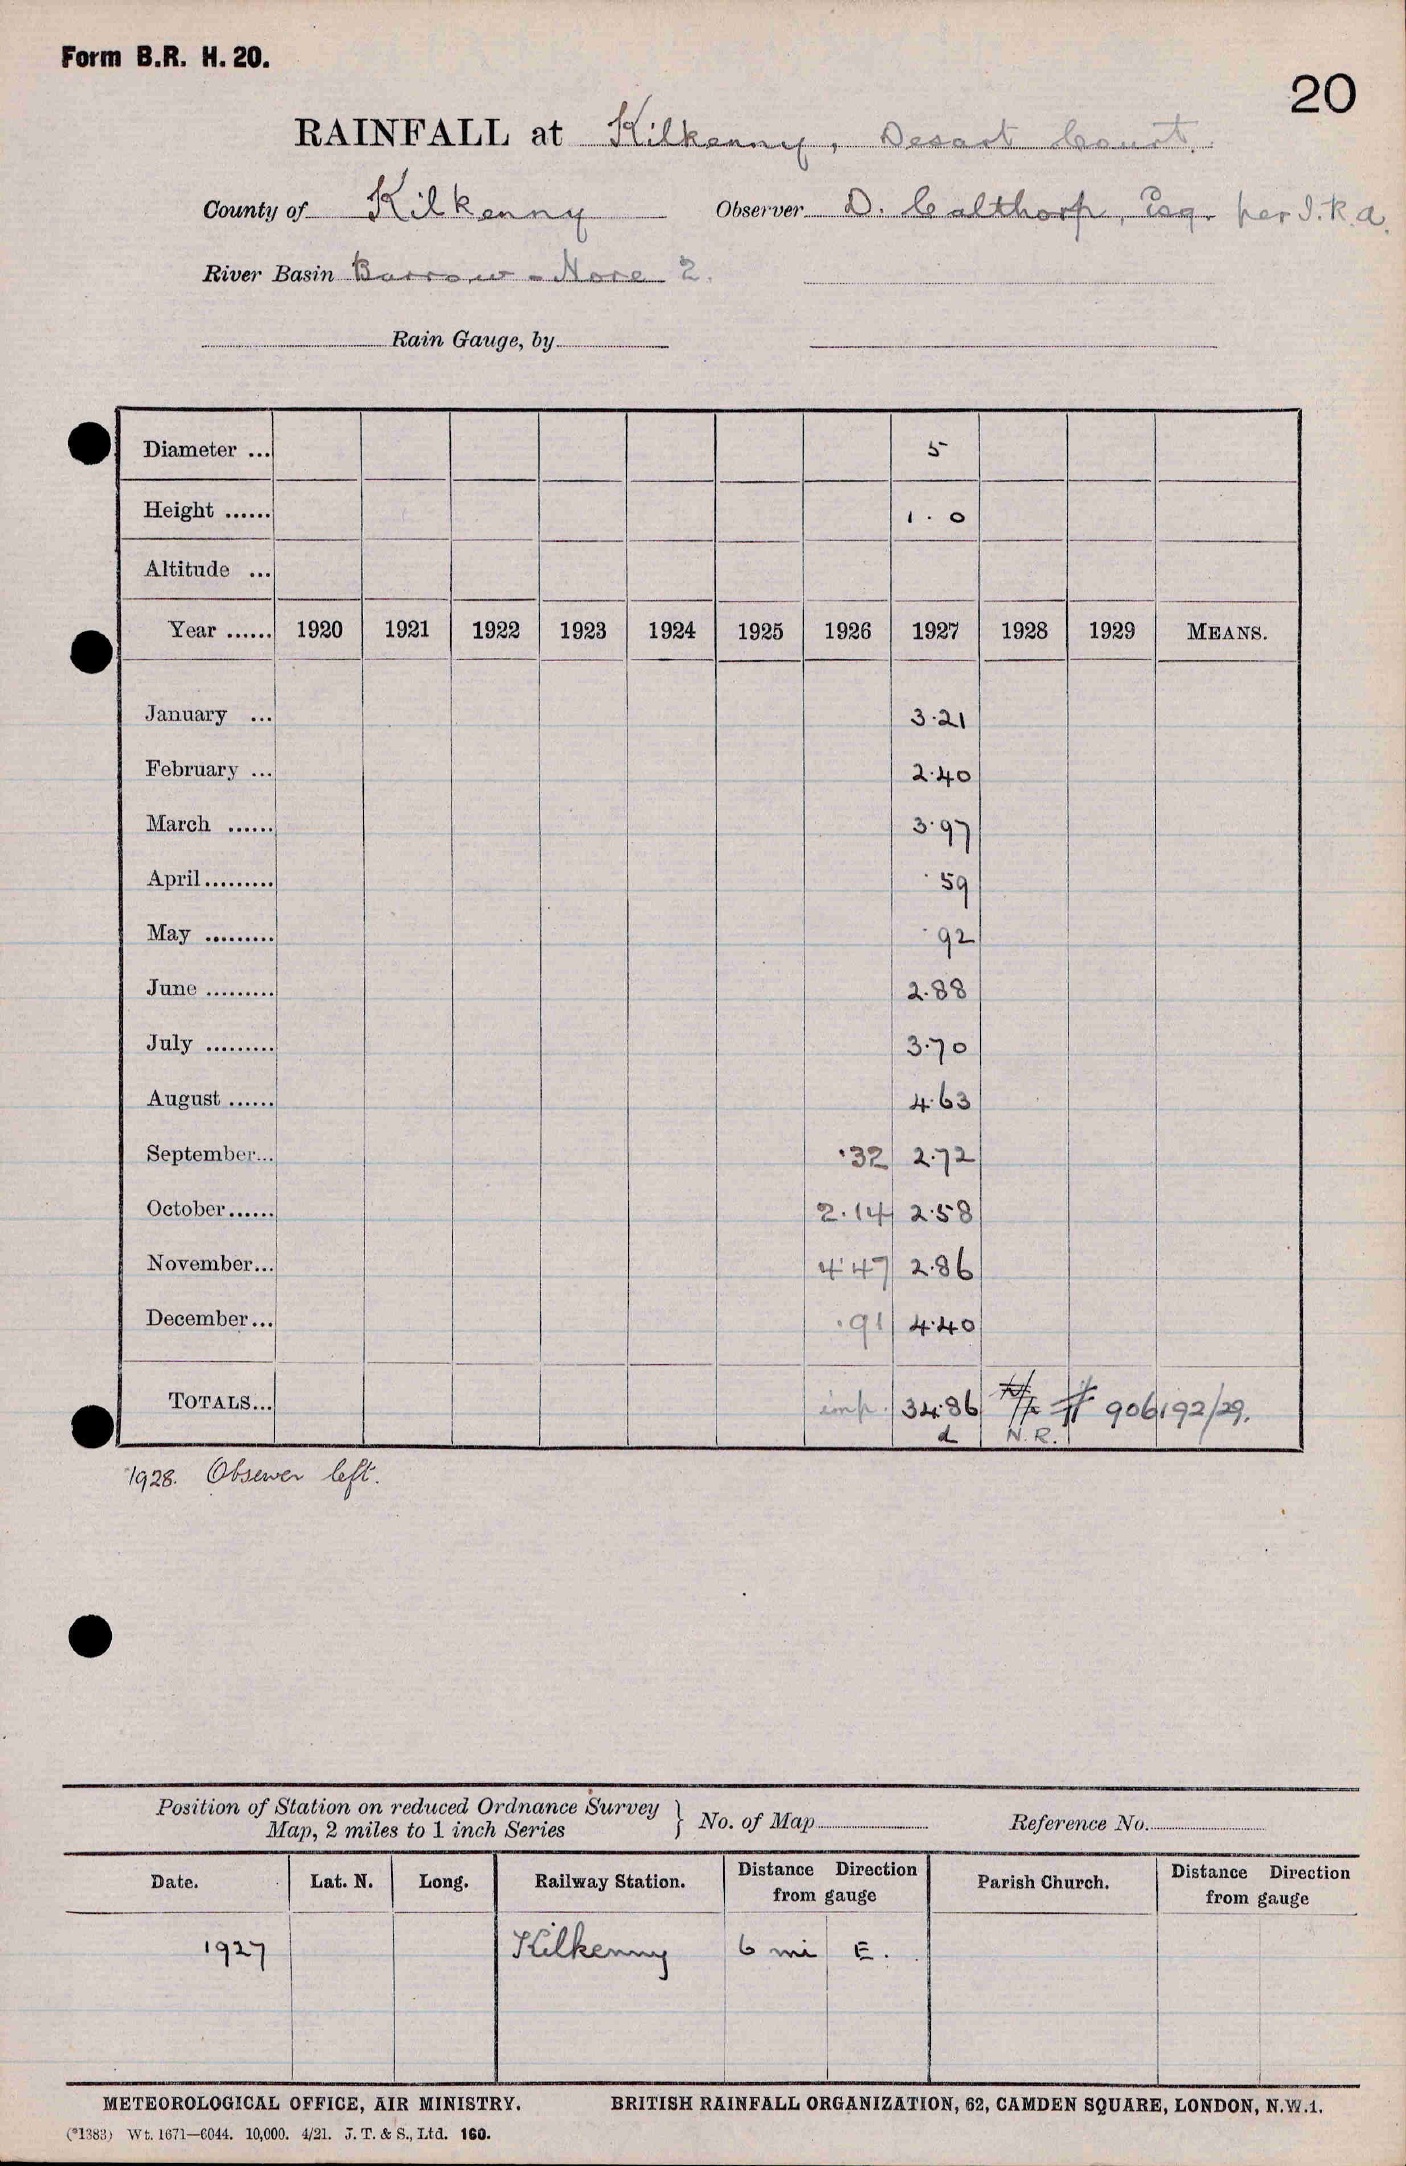 Form B.R. H. 20.
20
RAINFALL at Kilkenny, Desart Court.
County of Kilkenny Observer D. Calthorp, Esq. per I.R.A.
River Basin Barrow-Nore 2.
Rain Gauge, by
Diameter ... 5
Height ...... 1.0
Altitude ...
Year ...... 1920 1921 1922 1923 1924 1925 1926 1927 1928 1929 MEANS.
January ... 3.21
February ... 2.40
March ...... 3.97
April......... .59
May ......... .92
June ......... 2.88
July ......... 3.70
August ...... 4.63
September... .32 2.72
October...... 2.14 2.58
November... 4.47 2.86
December... .91 4.40
TOTALS... imp. 34.86 # 906192/29.
d N.R.
1928. Observer left.
Position of Station on reduced Ordnance Survey
Map, 2 miles to 1 inch Series } No. of Map Reference No.
Date. Lat. N. Long. Railway Station. Distance Direction from gauge Parish Church. Distance Direction from gauge
1927 Kilkenny 6 mi E.
METEOROLOGICAL OFFICE, AIR MINISTRY. BRITISH RAINFALL ORGANIZATION, 62, CAMDEN SQUARE, LONDON, N.W.1.
(*1383) Wt. 1671—6044. 10,000. 4/21. J. T. & S., Ltd. 160.